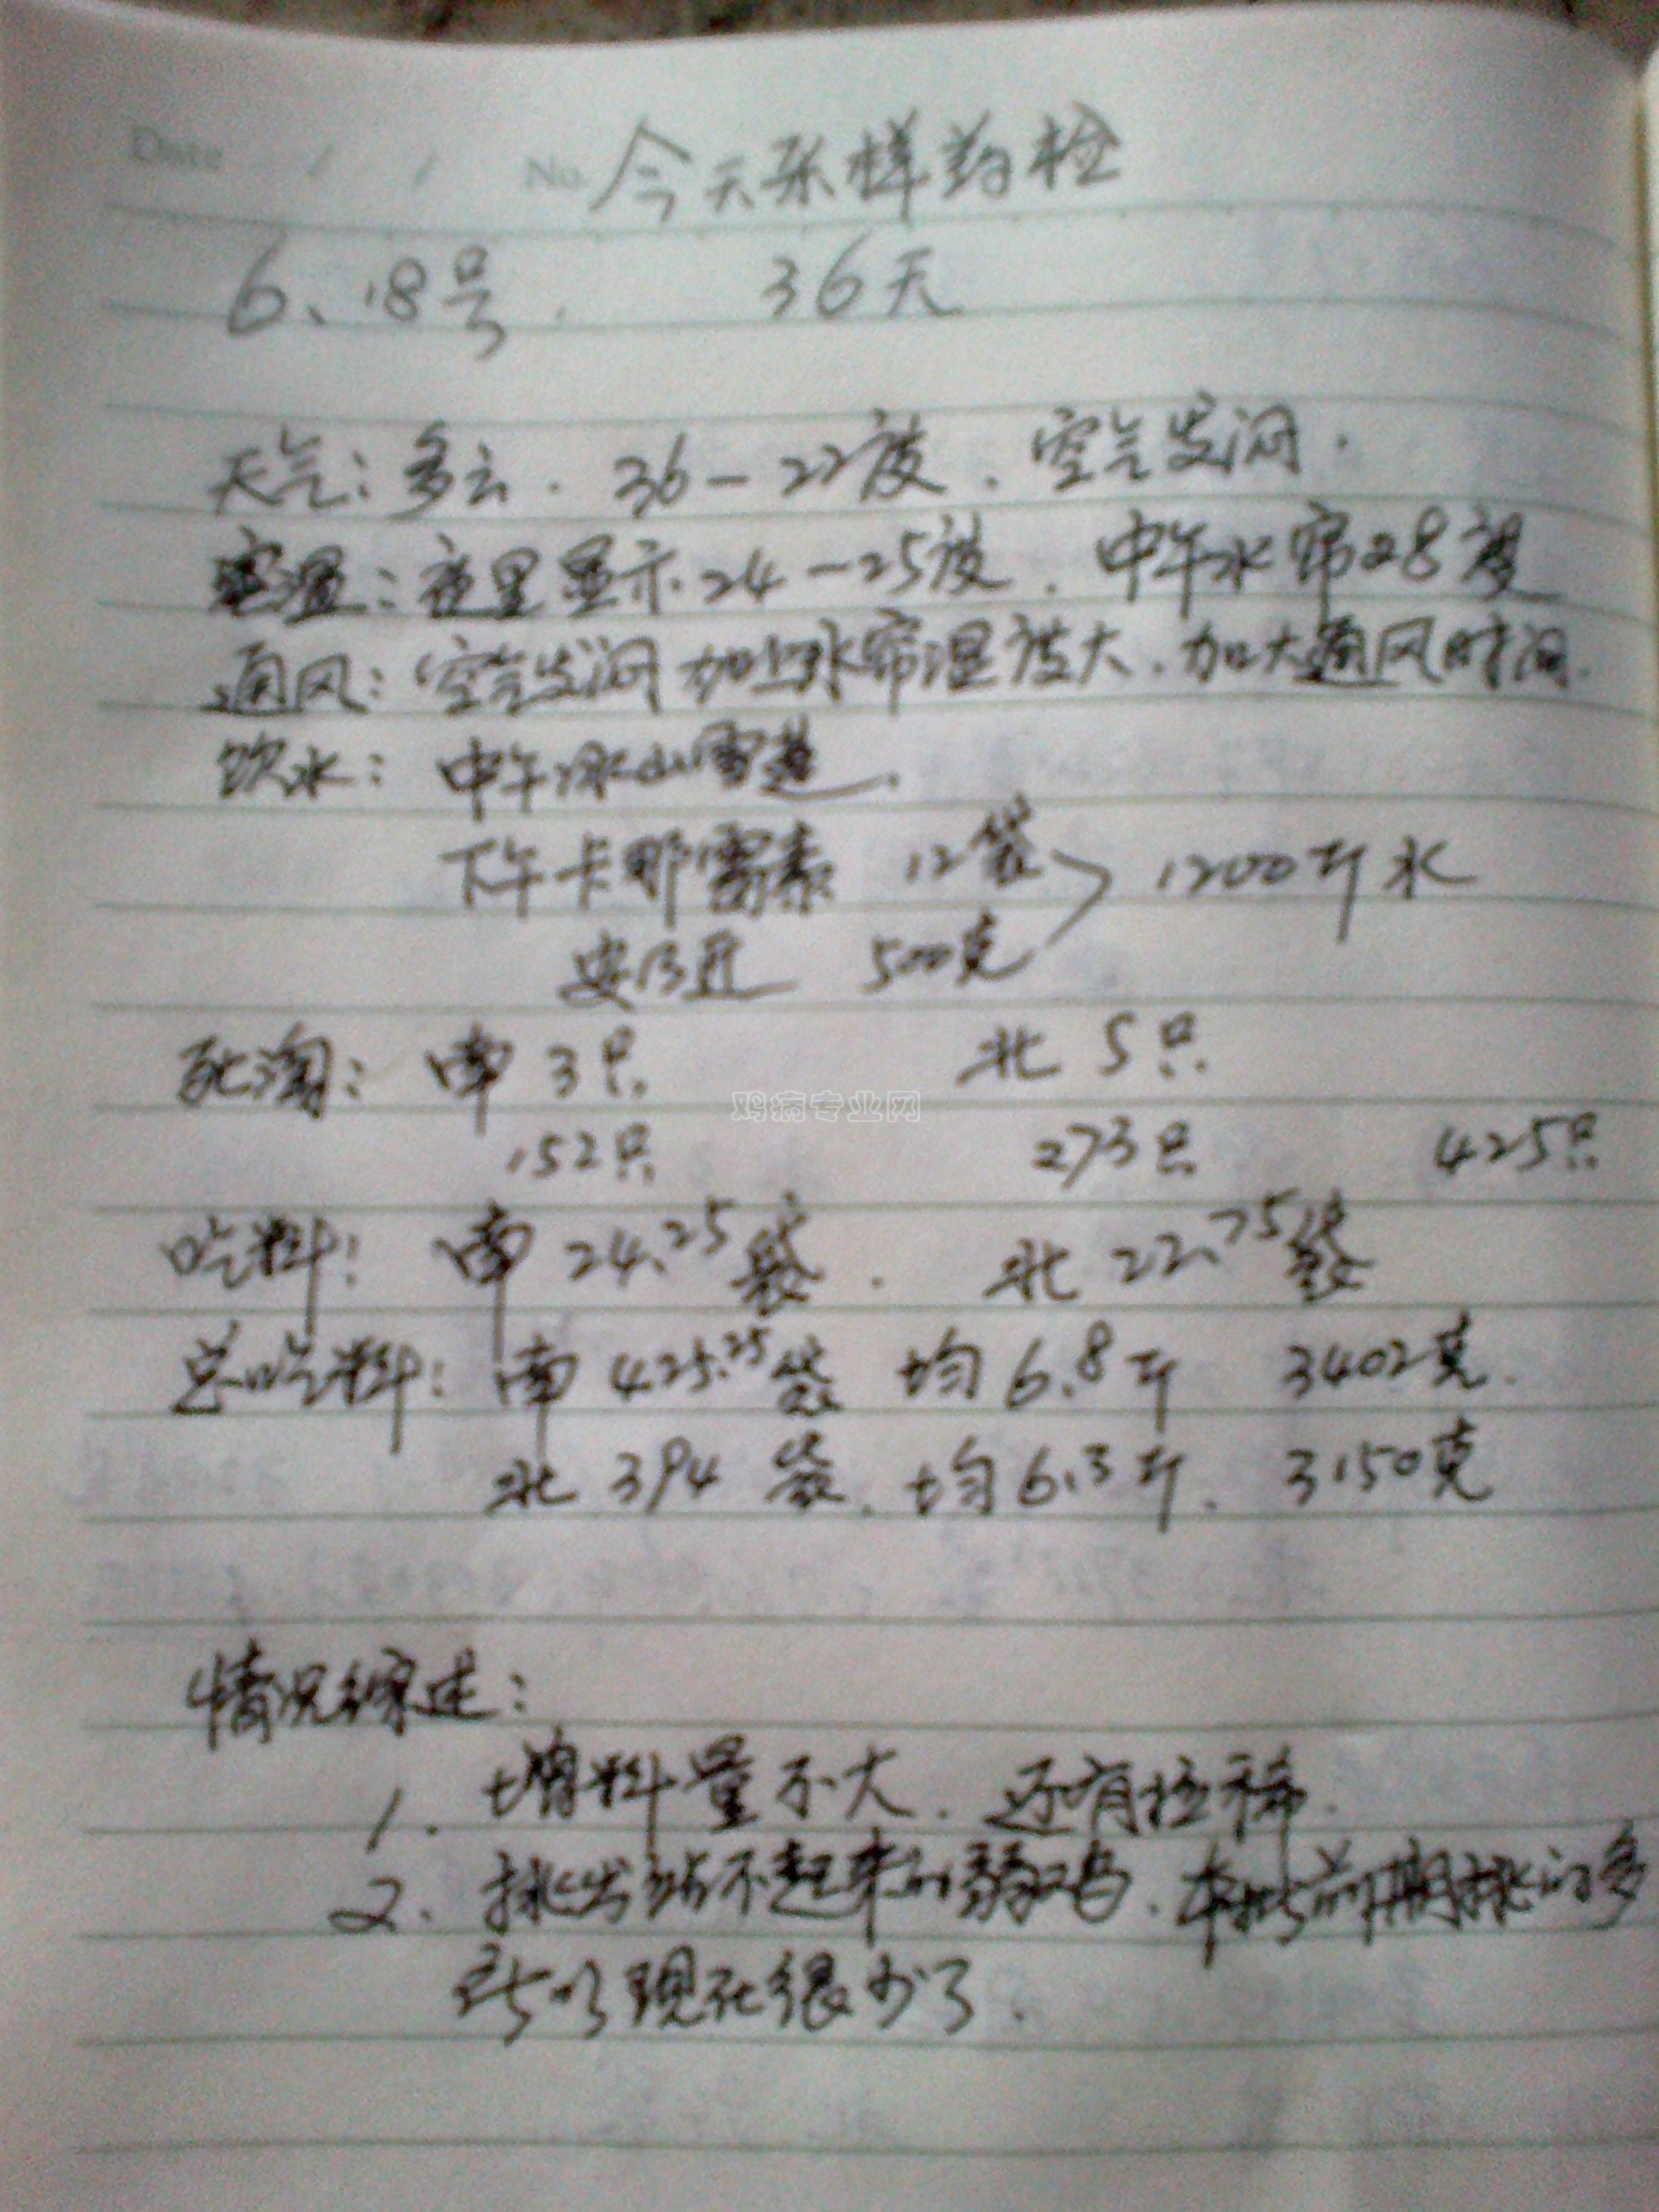 Date / / No. 今天采样药检
6、18号. 36天
天气：多云. 36-22度. 空气发闷.
室温：夜里显示24-25度. 中午水帘28度
通风：空气发闷加上水帘湿度大. 加大通风时间.
饮水：中午冰山雪莲.
下午卡那霉素 12袋 1200斤水
安乃近 500克
死淘：南 3只 北 5只
鸡病专业网
152只 273只 425只
吃料：南 24.25袋. 北 22.75袋
总吃料：南 425.25袋 均6.8斤 3402克.
北 394袋. 均6.3斤. 3150克
情况综述：
1. 增料量不大. 还有拉稀.
2. 挑出站不起来的弱鸡. 本批前期挑的多
所以现在很少了.